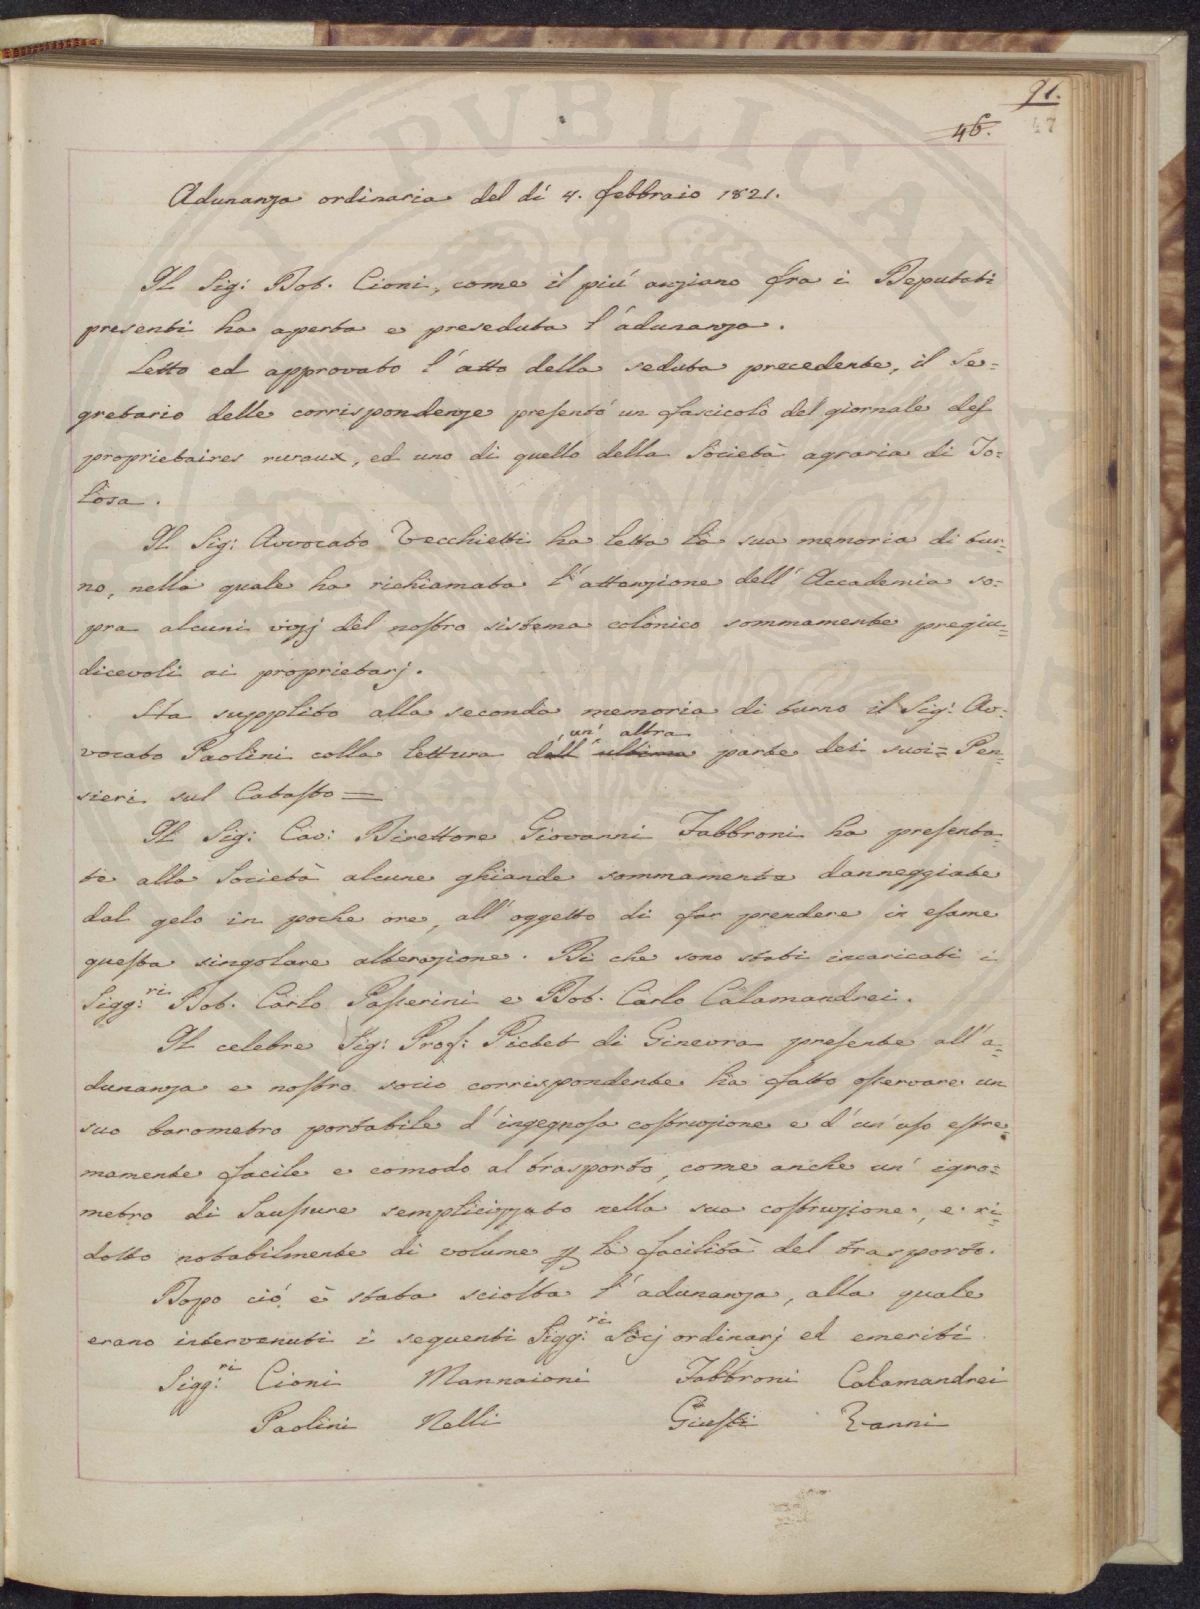 91.
46.
47
Adunanza ordinaria del dí 4. febbraio 1821.
Il Sig: Dot. Cioni, come il piú anziano fra i Deputati
presenti ha aperta e preseduta l'adunanza.
Letto ed approvato l'atto della seduta precedente, il Se=
gretario delle corrispondenze presentó un fascicolo del giornale des
proprietaires ruraux, ed uno di quello della Società agraria di To=
losa.
Il Sig: Avvocato Tecchietti ha letta la sua memoria di tur=
no, nella quale ha richiamata l'attenzione dell'Accademia so=
pra alcuni vizj del nostro sistema colonico sommamente pregiu=
dicevoli ai proprietarj.
Ha supplito alla seconda memoria di turno il Sig: Av=
un' altra
vocato Paolini colla lettura dell'ultima parte dei suoi= Pen=
sieri sul Catasto=
Il Sig: Cav: Direttore Giovanni Fabbroni ha presenta=
te alla Società alcune ghiande sommamente danneggiate
dal gelo in poche ore, all'oggetto di far prendere in esame
questa singolare alterazione. Di che sono stati incaricati i
Sigg:ri Dot. Carlo Passerini e Dot. Carlo Calamandrei.
Il celebre Sig: Prof: Pictet di Ginevra presente all'a=
dunanza e nostro socio corrispondente ha fatto osservare un
suo barometro portabile d'ingegnosa costruzione e d'un'uso estre=
mamente facile e comodo al trasporto, come anche un' igro=
metro di Saussure semplicizzato nella sua costruzione, e ri=
dotto notabilmente di volume p la facilità del trasporto.
Dopo ció è stata sciolta l'adunanza, alla quale
erano intervenuti i seguenti Sigg:ri Socj ordinarj ed emeriti
Sigg:ri Cioni Mannaioni Fabbroni Calamandrei
Paolini Nelli Giusti Zanni